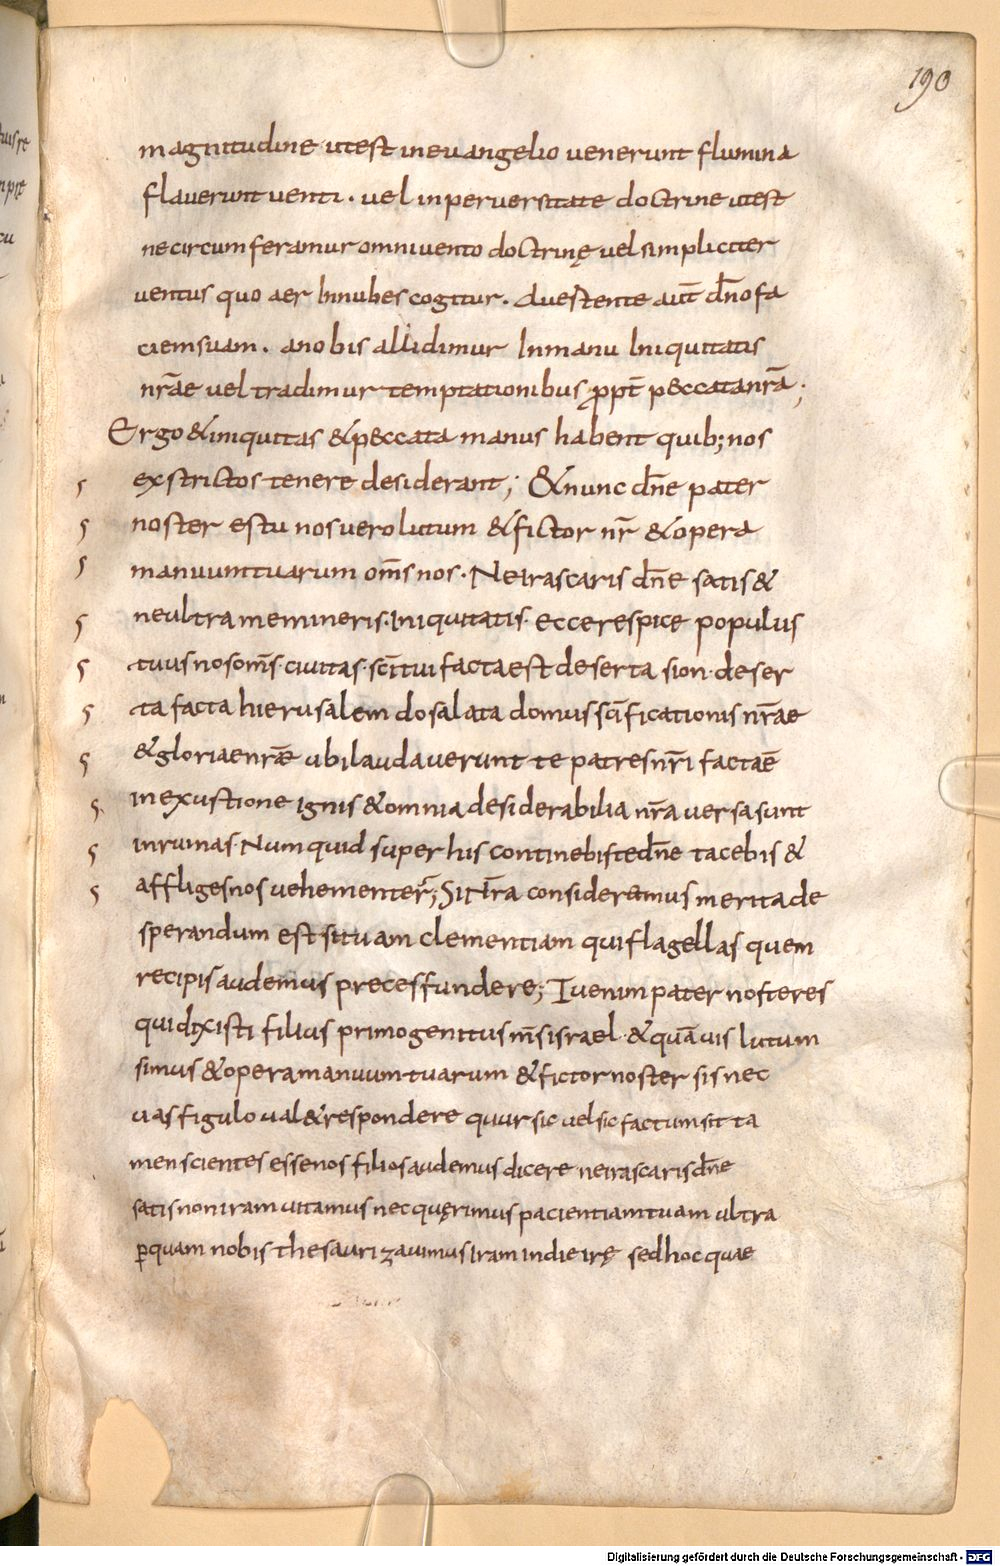 190
magnitudine utest in euangelio uenerunt flumina
flauerunt uenti. uel inperuersitate doctrine utest
necircumferamur omniuento doctrinę uel simpliciter
uentus quo aer Innubes cogitur. auestente aut̄ dn̄o fa
ciemsuam. anobis allidimur Inmanu Iniquitatis
nr̄ae uel tradimur temptationibus ꝓpt̄ peccatanr̄a;
Ergo &iniquitas &peccata manus habent quib; nos
exstrictos tenere desiderant; &nunc dn̄e pater
noster estu nosuero lutum &fictor nr̄ &opera
manuumtuarum om̄s nos. Neirascaris dn̄e satis &
neultra memineris. Iniquitatis. eccerespice populus
tuus nosom̄s. ciuitas. sc̄i tui facta est deserta sion. deser
ta facta hierusalem dosalata domus sc̄ificationis nr̄ae
&gloriaenr̄æ ubilaudauerunt te patresnr̄i factaē
inexustione ignis &omnia desiderabilia nr̄a uersasunt
inruinas. Numquid super his continebistedn̄e tacebis &
affligesnos uehementer; Sinr̄a consideremus merita de
sperandum est situam clementiam quiflagellas quem
recipis audemus precesfundere; Tuenim pater nosteres
quidixisti filius primogenitus m̄s israel. &quāuis lutum
simus &operamanuumtuarum &fictornoster sis nec
uasfigulo ual&respondere quur sic uelsic factumsit ta
menscientes essenos filios audemus dicere neirascaris dn̄e
satis noniram uitamus necquęrimus pacientiamtuam ultra
ꝑquam nobis thesaurizauimus Iram indieirę sedhoc quae
Digitalisierung gefördert durch die Deutsche Forschungsgemeinschaft - DFG